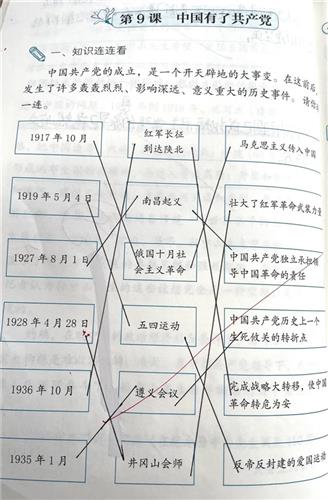 第9课 中国有了共产党
一、知识连连看
中国共产党的成立，是一个开天辟地的大事变。在这前后，
发生了许多轰轰烈烈、影响深远、意义重大的历史事件。请你
一连。
1917年10月
红军长征
到达陕北
马克思主义传入中国
1919年5月4日
南昌起义
壮大了红军革命武装力量
1927年8月1日
俄国十月社
会主义革命
中国共产党独立承担领
导中国革命的责任
1928年4月28日
五四运动
中国共产党历史上一个
生死攸关的转折点
1936年10月
遵义会议
完成战略大转移，使中国
革命转危为安
1935年1月
井冈山会师
反帝反封建的爱国运动